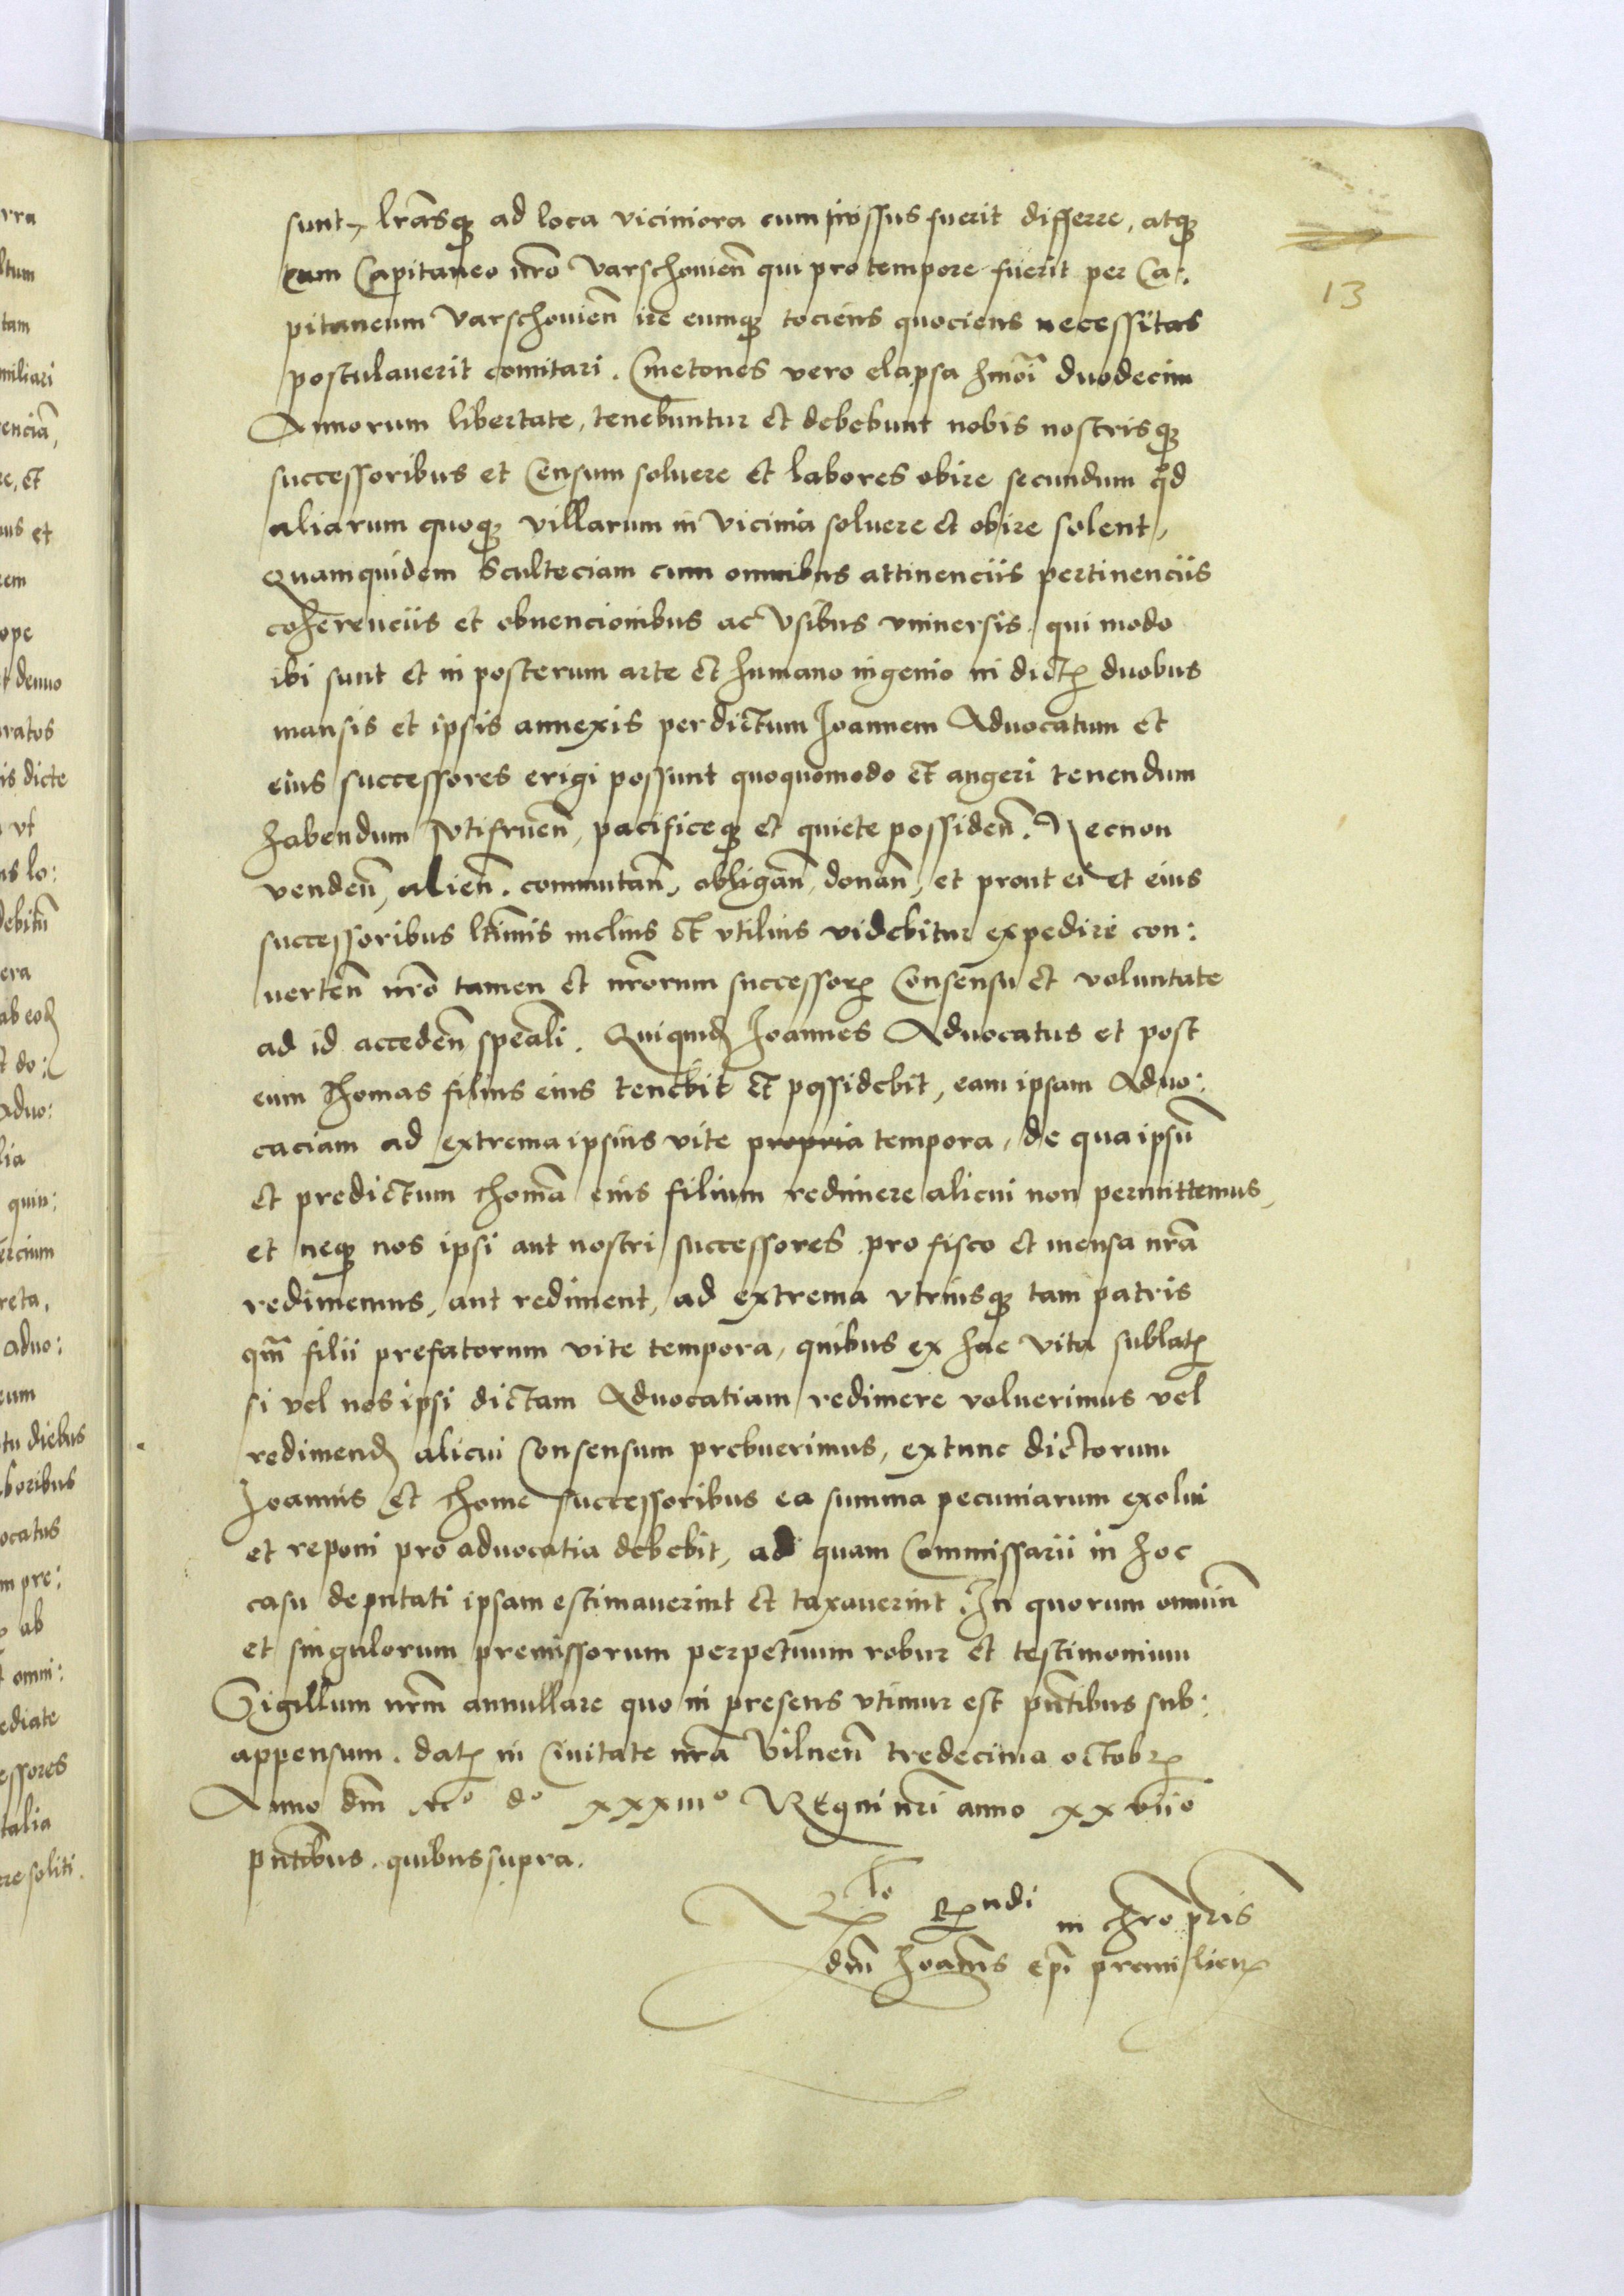 sunt, lrãsq; ad loca viciniora cum iussus fuerit differre, atq;
cum Capitaneo nrõ Varschouieñ qui pro tempore fuerit per Ca:
pitaneum Varschouieñ ire eumq; tociens quociens necessitas
postulauerit comitari. Cmetones vero elapsa hmõi duodecim
Annorum libertate, tenebuntur et debebunt nobis nostrisq;
successoribus et Censum soluere et labores obire secundum qd
aliarum quoq; villarum in vicinia soluere et obire solent,
Quamquidem Sculteciam cum omnibus attinenciis pertinenciis
coherenciis et obuencionibus ac Vsibus vniuersis, qui modo
ibi sunt et in posterum arte et humano ingenio in dict; duobus
mansis et ipsis annexis per dictum Joannem Aduocatum et
eius successores erigi possunt quoquomodo et augeri tenendum
habendum Vtifrueñ, pacificeq; et quiete possideñ. Necnon
vendeñ, alieñ. commutañ, obligañ, donañ, et prout ei et eius
successoribus ltĩmis melius et vtilius videbitur expedire con:
uerteñ nrõ tamen et nrõrum successor; Consensu et voluntate
ad id accedeñ speãli. Quiquid; Joannes Aduocatus et post
eum Thomas filius eius tenebit et possidebit, eam ipsam Aduo:
caciam ad extrema ipsius vite propria tempora, de qua ipsũ
et predictum Thomã eius filium redimere alicui non permittemus,
et neq; nos ipsi aut nostri successores pro fisco et mensa nrã
redimemus, aut rediment, ad extrema vtriusq; tam patris
qm̃ filii prefatorum vite tempora, quibus ex hac vita sublat;
si vel nos ipsi dictam Aduocatiam redimere voluerimus vel
redimend; alicui Consensum prebuerimus, extunc dictorum
Joannis et Thome successoribus ea summa pecuniarum exolui
et reponi pro aduocatia debebit, ad quam Commissarii in hoc
casu deputati ipsam estimauerint et taxauerint. In quorum omniũ
et singulorum premissorum perpetuum robur et testimonium
Sigillum nrm̃ annullare quo in presens vtimur est pñtibus sub:
appensum. dat; in Ciuitate nrã Vilneñ tredecima octobr;
Anno dñi Mº dº xxxiiiº Regni nri anno xxviiº
pñtibus. quibus supra.
Rlo Rndi in chrõ pris
dni Joañis epĩ premislien;
13